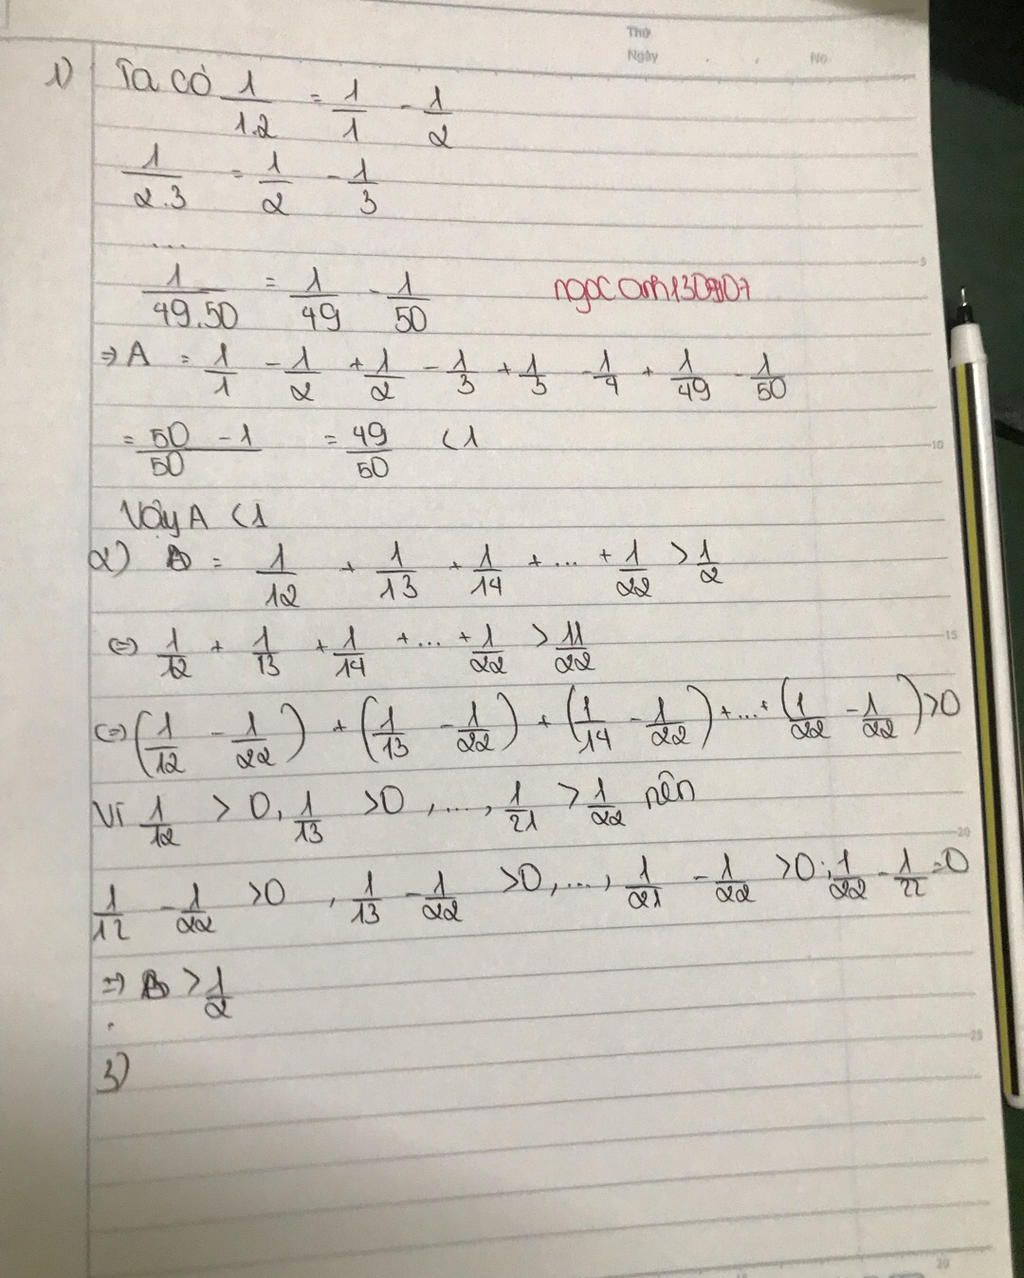 Thứ
Ngày No
1) Ta có 1/1.2 = 1/1 - 1/2
1/2.3 = 1/2 - 1/3
...
1/49.50 = 1/49 - 1/50
=> A = 1/1 - 1/2 + 1/2 - 1/3 + 1/3 - 1/4 + 1/49 - 1/50
= 50 - 1/50 = 49/50 < 1
Vậy A < 1
2) B = 1/12 + 1/13 + 1/14 + ... + 1/22 > 1/2
<=> 1/12 + 1/13 + 1/14 + ... + 1/22 > 11/22
<=> (1/12 - 1/22) + (1/13 - 1/22) + (1/14 - 1/22) + ... + (1/22 - 1/22) > 0
Vì 1/12 > 0, 1/13 > 0, ..., 1/21 > 1/22 nên
1/12 - 1/22 > 0, 1/13 - 1/22 > 0, ..., 1/21 - 1/22 > 0; 1/22 - 1/22 = 0
=> B > 1/2
3)
5
10
15
20
25